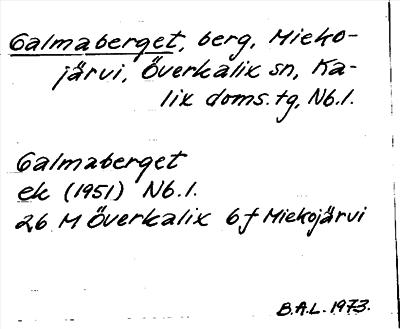 Galmaberget, berg, Mieko-
järvi, Överkalix sn, Ka-
lix doms.tg, Nb.l.
Galmaberget
ek (1951) Nb.l.
26 M Överkalix 6 f Miekojärvi
B.A.L. 1973.